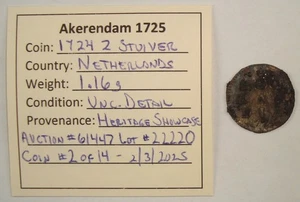 Akerendam 1725
Coin: 1724 2 Stuiver
Country: Netherlands
Weight: 1.16g
Condition: Unc. Detail
Provenance: Heritage Showcase
Auction #61447 Lot #22220
Coin #2 of 14 - 2/3/2025